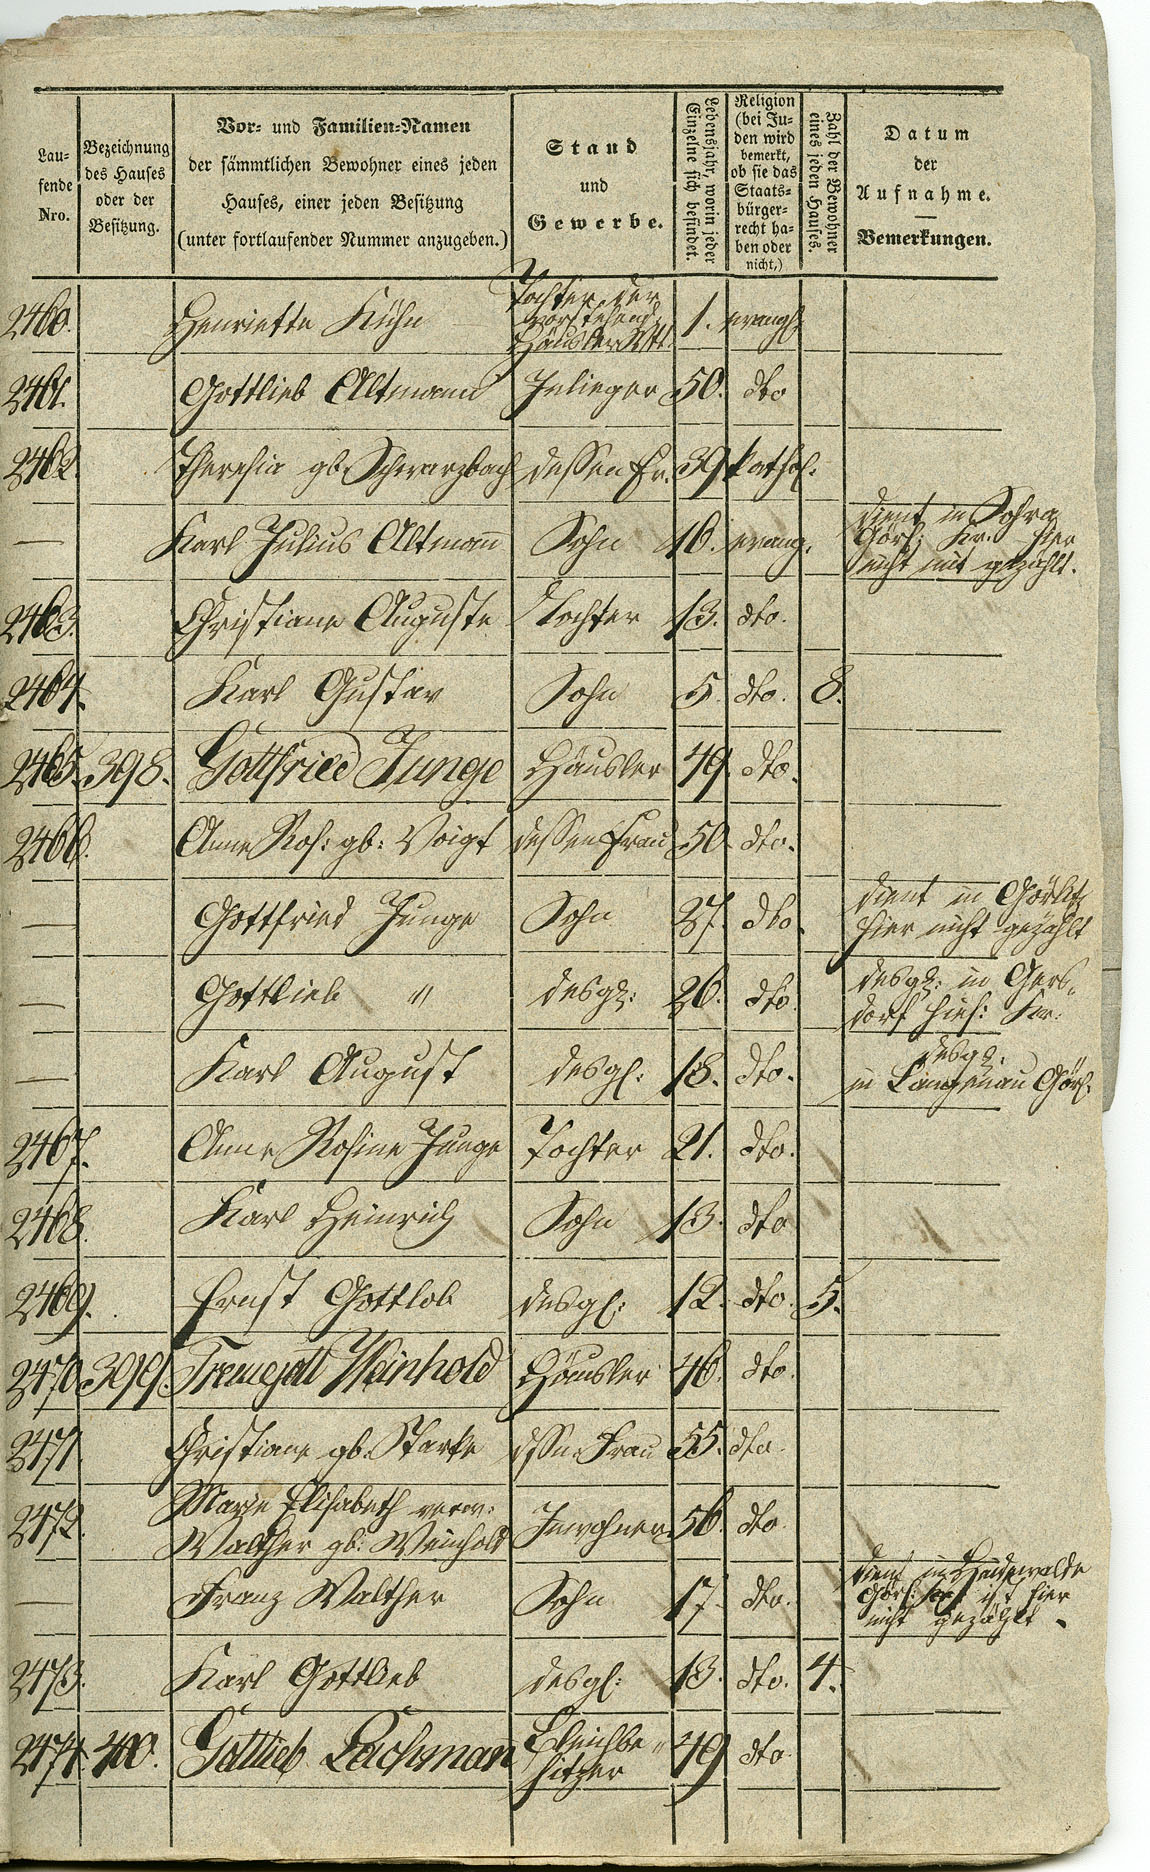 Lau-
fende
Nro.
Bezeichnung
des Hauses
oder der
Besitzung.
Vor- und Familien-Namen
der sämmtlichen Bewohner eines jeden
Hauses, einer jeden Besitzung
(unter fortlaufender Nummer anzugeben.)
Stand
und
Gewerbe.
Lebensjahr, worin jeder
Einzelne sich befindet.
Religion
(bei Ju-
den wird
bemerkt,
ob sie das
Staats-
bürger-
recht ha-
ben oder
nicht.)
Zahl der Bewohner
eines jeden Hauses.
Datum
der
Aufnahme.
Bemerkungen.
2460. Henriette Kühn Tochter der vorstehend. Häusler 1. evangl.
2461. Gottlieb Altmann Inlieger 50. dto
2462. Theresia gb. Schwarzbach dessen Fr. 39 kathol.
— Karl Julius Altmann Sohn 16. evang. dient in Sohra
Görl: Kr. hier
nicht mit gezählt.
2463. Christiane Auguste Tochter 13. dto.
2464. Karl Gustav Sohn 5. dto. 8.
2465. 398. Gottfried Junge Häusler 49. dto.
2466. Anne Ros: gb: Voigt dessen Frau 50. dto.
— Gottfried Junge Sohn 27. dto. dient in Görlitz
hier nicht gezählt
— Gottlieb " desgl: 26. dto. desgl: in Gers-
dorf hies: Kr.
— Karl August desgl: 18. dto. desgl.
in Langenau Görl.
2467. Anne Rosine Junge Tochter 21. dto.
2468. Karl Heinrich Sohn 13. dto
2469. Ernst Gottlob desgl: 12. dto. 5.
2470. 399. Traugott Weinhold Häusler 46. dto.
2471. Christiane gb. Starke dssn Frau 55. dto.
2472. Marie Elisabeth verw:
Walther gb: Weinhold Inwohner 56. dto.
— Franz Walther Sohn 17. dto. dient in
Görl: ist hier
nicht gezählt.
2473. Karl Gottlieb desgl: 13. dto. 4.
2474. 400. Gottlieb Lachmann Bleichbe-
sitzer 49 dto